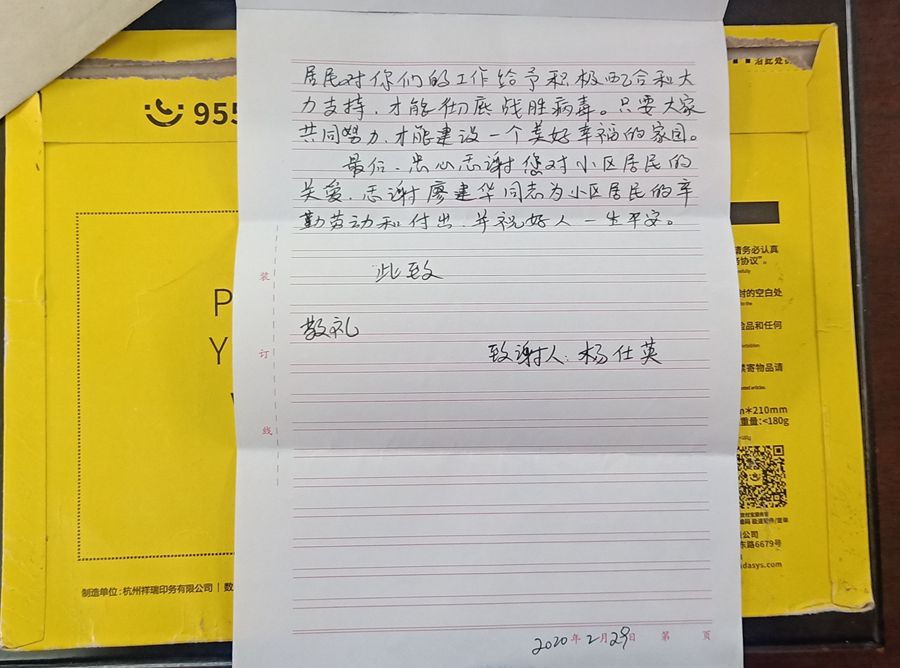 955
居民对你们的工作给予积极配合和大
力支持，才能彻底战胜病毒。只要大家
共同努力，才能建设一个美好幸福的家园。
最后，忠心感谢您对小区居民的
关爱，感谢廖建华同志为小区居民的辛
勤劳动和付出，并祝好人一生平安。
此致
敬礼
致谢人：杨仕英
装
订
线
2020年2月29日 第 页
P
Y
请务必认真
务协议”。
封的空白处
品和任何
寄物品请
m*210mm
重量：<180g
公司
东路6679号
dasys.com
制造单位：杭州祥瑞印务有限公司 | 数